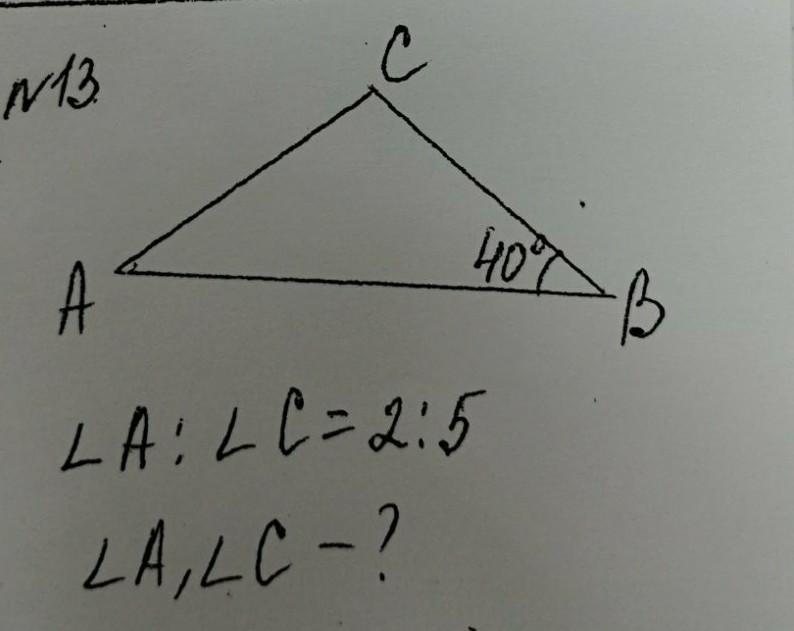 N13.
C
40°
A
B
∠A:∠C=2:5
∠A,∠C-?